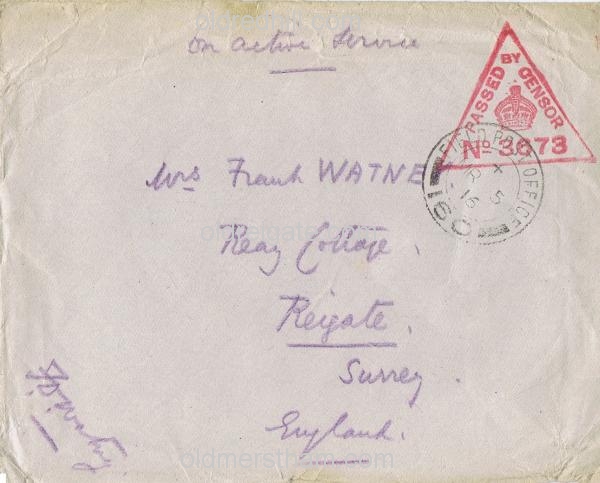 On Active Service
PASSED BY CENSOR
No 3673
FIELD POST OFFICE
X
5
16
160
Mrs Frank WATNEY
Reay Cottage,
Reigate.
Surrey.
England.
oldmerstham.com